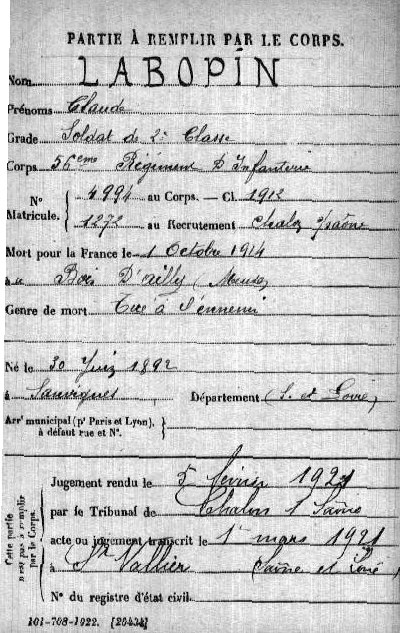 PARTIE À REMPLIR PAR LE CORPS.
Nom LABOPIN
Prénoms Claude
Grade Soldat de 2e Classe
Corps 56eme Régiment D'Infanterie
N° Matricule. { 4994 au Corps. — Cl. 1912
1272 au Recrutement Chalon s/Saône
Mort pour la France le 1 Octobre 1914
à Bois D'ailly (Meuse)
Genre de mort Tué à l'ennemi
Né le 30 Juin 1892
à Sanvignes Département (S. et Loire)
Arrt municipal (pr Paris et Lyon), à défaut rue et N°. }
Cette partie n'est pas à remplir par le Corps.
Jugement rendu le 5 février 1921
par le Tribunal de Chalon s/ Saône
acte ou jugement transcrit le 1er mars 1921
à St Vallier Saône et Loire
N° du registre d'état civil
101-708-1922. [26434]